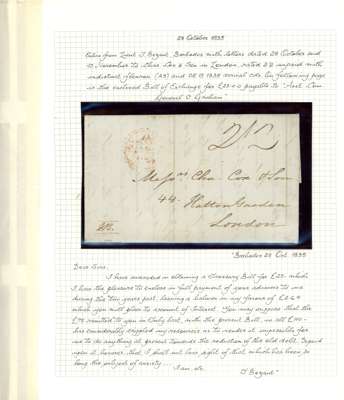 28 October 1835
Entire from Lieut J. Bryant, Barbados with letters dated 28 October and
November to Chas Cox & Son in London, rated 2/2 unpaid with
1835 arrival cds. The following page
is the enclosed Bill of Exchange for payable to
2/2
Messrs Chas Cox & Son
44 Hatton Garden
London
"Barbados 28 Oct 1835
Dear Sirs,
I have succeeded in obtaining a Treasury Bill for £25. which
I have the pleasure to enclose in full payment of your advances to me
during the two years past, leaving a balance in my favour of
which you will place to account of Interest. You may suppose that the
remitted to you in July last, with the present Bill, in all
has considerably crippled my resources as to render it impossible for
me to do anything at present towards the reduction of the old debt. Depend
upon it, however, that I shall not lose sight of that which has been so
long the subject of anxiety...
I am, etc
J Bryant"